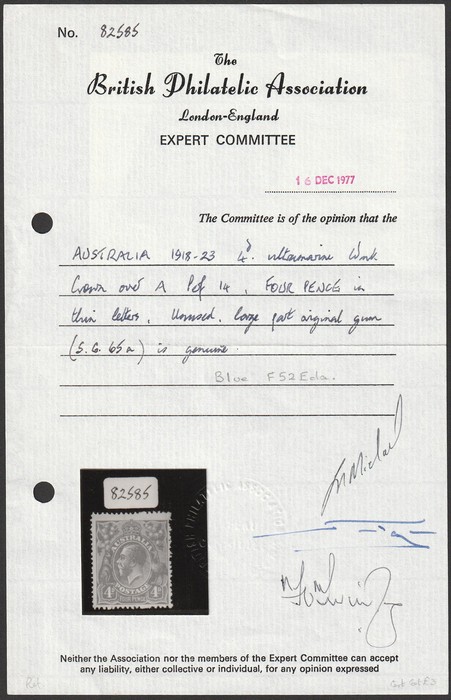 No. 82585
The
British Philatelic Association
London-England
EXPERT COMMITTEE
16 DEC 1977
The Committee is of the opinion that the
AUSTRALIA 1918-23 4d. ultramarine Wmk
Crown over A Perf 14, FOUR PENCE in
thin letters. Unused, large part original gum
(S.G. 65a) is genuine.
Blue F52Eda.
82585
AUSTRALIA
4d POSTAGE 4d
FOUR PENCE
Neither the Association nor the members of the Expert Committee can accept
any liability, either collective or individual, for any opinion expressed